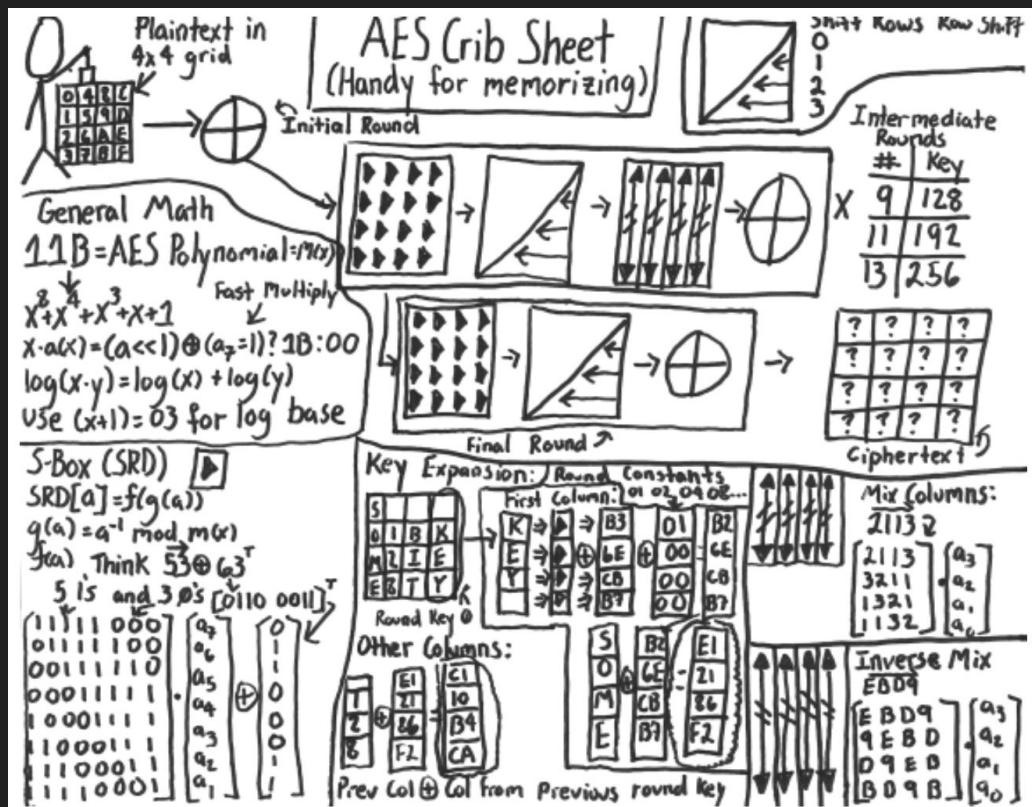 Plaintext in
4x4 grid
0 4 8 C
1 5 9 D
2 6 A E
3 7 B F
Initial Round
AES Crib Sheet
(Handy for memorizing)
Shift Rows Row Shift
0
1
2
3
Intermediate
Rounds
# Key
9 128
11 192
13 256
X
General Math
11B=AES Polynomial=M(x)
x⁸+x⁴+x³+x+1
Fast Multiply
x·a(x)=(a<<1)⊕(a₇=1)?1B:00
log(x·y)=log(x)+log(y)
Use (x+1)=03 for log base
Final Round
? ? ? ?
? ? ? ?
? ? ? ?
? ? ? ?
Ciphertext
S-Box (SRD)
SRD[a]=f(g(a))
g(a)=a⁻¹ mod m(x)
f(a) Think 53⊕63ᵀ
5 1's and 3 0's [0110 0011]ᵀ
1 1 1 1 1 0 0 0
0 1 1 1 1 1 0 0
0 0 1 1 1 1 1 0
0 0 0 1 1 1 1 1
1 0 0 0 1 1 1 1
1 1 0 0 0 1 1 1
1 1 1 0 0 0 1 1
1 1 1 1 0 0 0 1
·
a₇
a₆
a₅
a₄
a₃
a₂
a₁
⊕
0
1
1
0
0
0
1
1
Key Expansion: Round Constants
First Column: 01 02 04 08...
S
O 1 B K
M 2 I E
E 8 T Y
Round Key 0
K
E
Y
B3
6E
CB
B7
01
00
00
00
B2
6E
CB
B7
S
O
M
E
⊕
B2
6E
CB
B7
=
E1
21
86
F2
Other Columns:
1
2
8
⊕
E1
21
86
F2
=
C1
10
B4
CA
Prev Col ⊕ Col from Previous round key
Mix Columns:
2113
2 1 1 3
3 2 1 1
1 3 2 1
1 1 3 2
·
a₃
a₂
a₁
a₀
Inverse Mix
EBD9
E B D 9
9 E B D
D 9 E B
B D 9 E
·
a₃
a₂
a₁
a₀